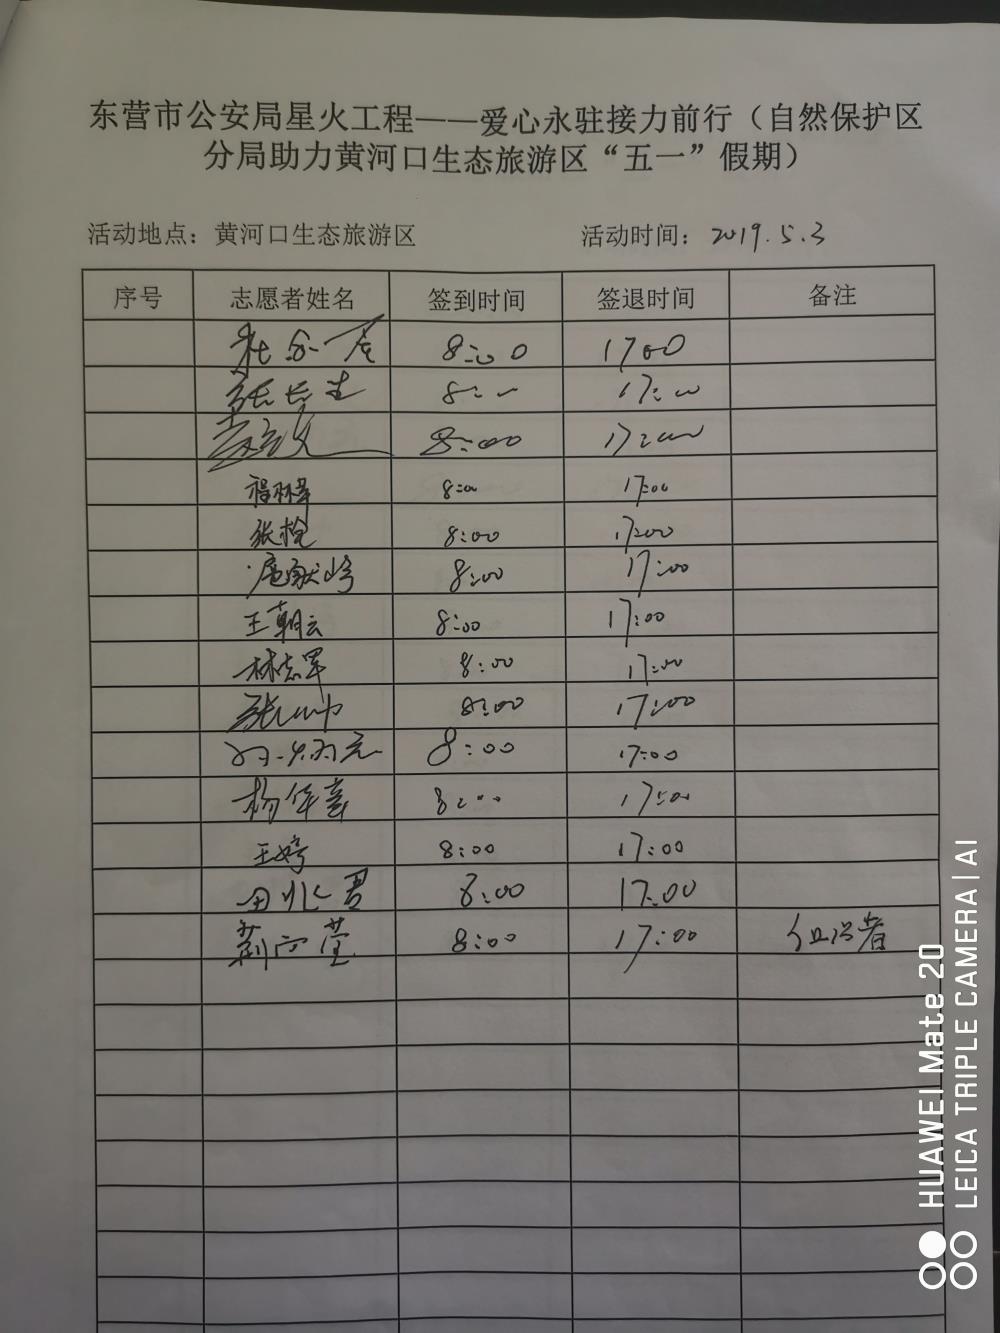 东营市公安局星火工程——爱心永驻接力前行（自然保护区
分局助力黄河口生态旅游区“五一”假期）
活动地点：黄河口生态旅游区 活动时间：2019.5.3
序号 志愿者姓名 签到时间 签退时间 备注
8:00 1700
张长生 8:00 17:00
8:00 17:00
8:00 17:00
张栓 8:00 17:00
8:00 17:00
王朝云 8:00 17:00
林志军 8:00 17:00
张帅 8:00 17:00
8:00 17:00
8:00 17:00
王婷 8:00 17:00
田兆君 8:00 17:00
8:00 17:00 组织者
HUAWEI Mate 20
LEICA TRIPLE CAMERA | AI